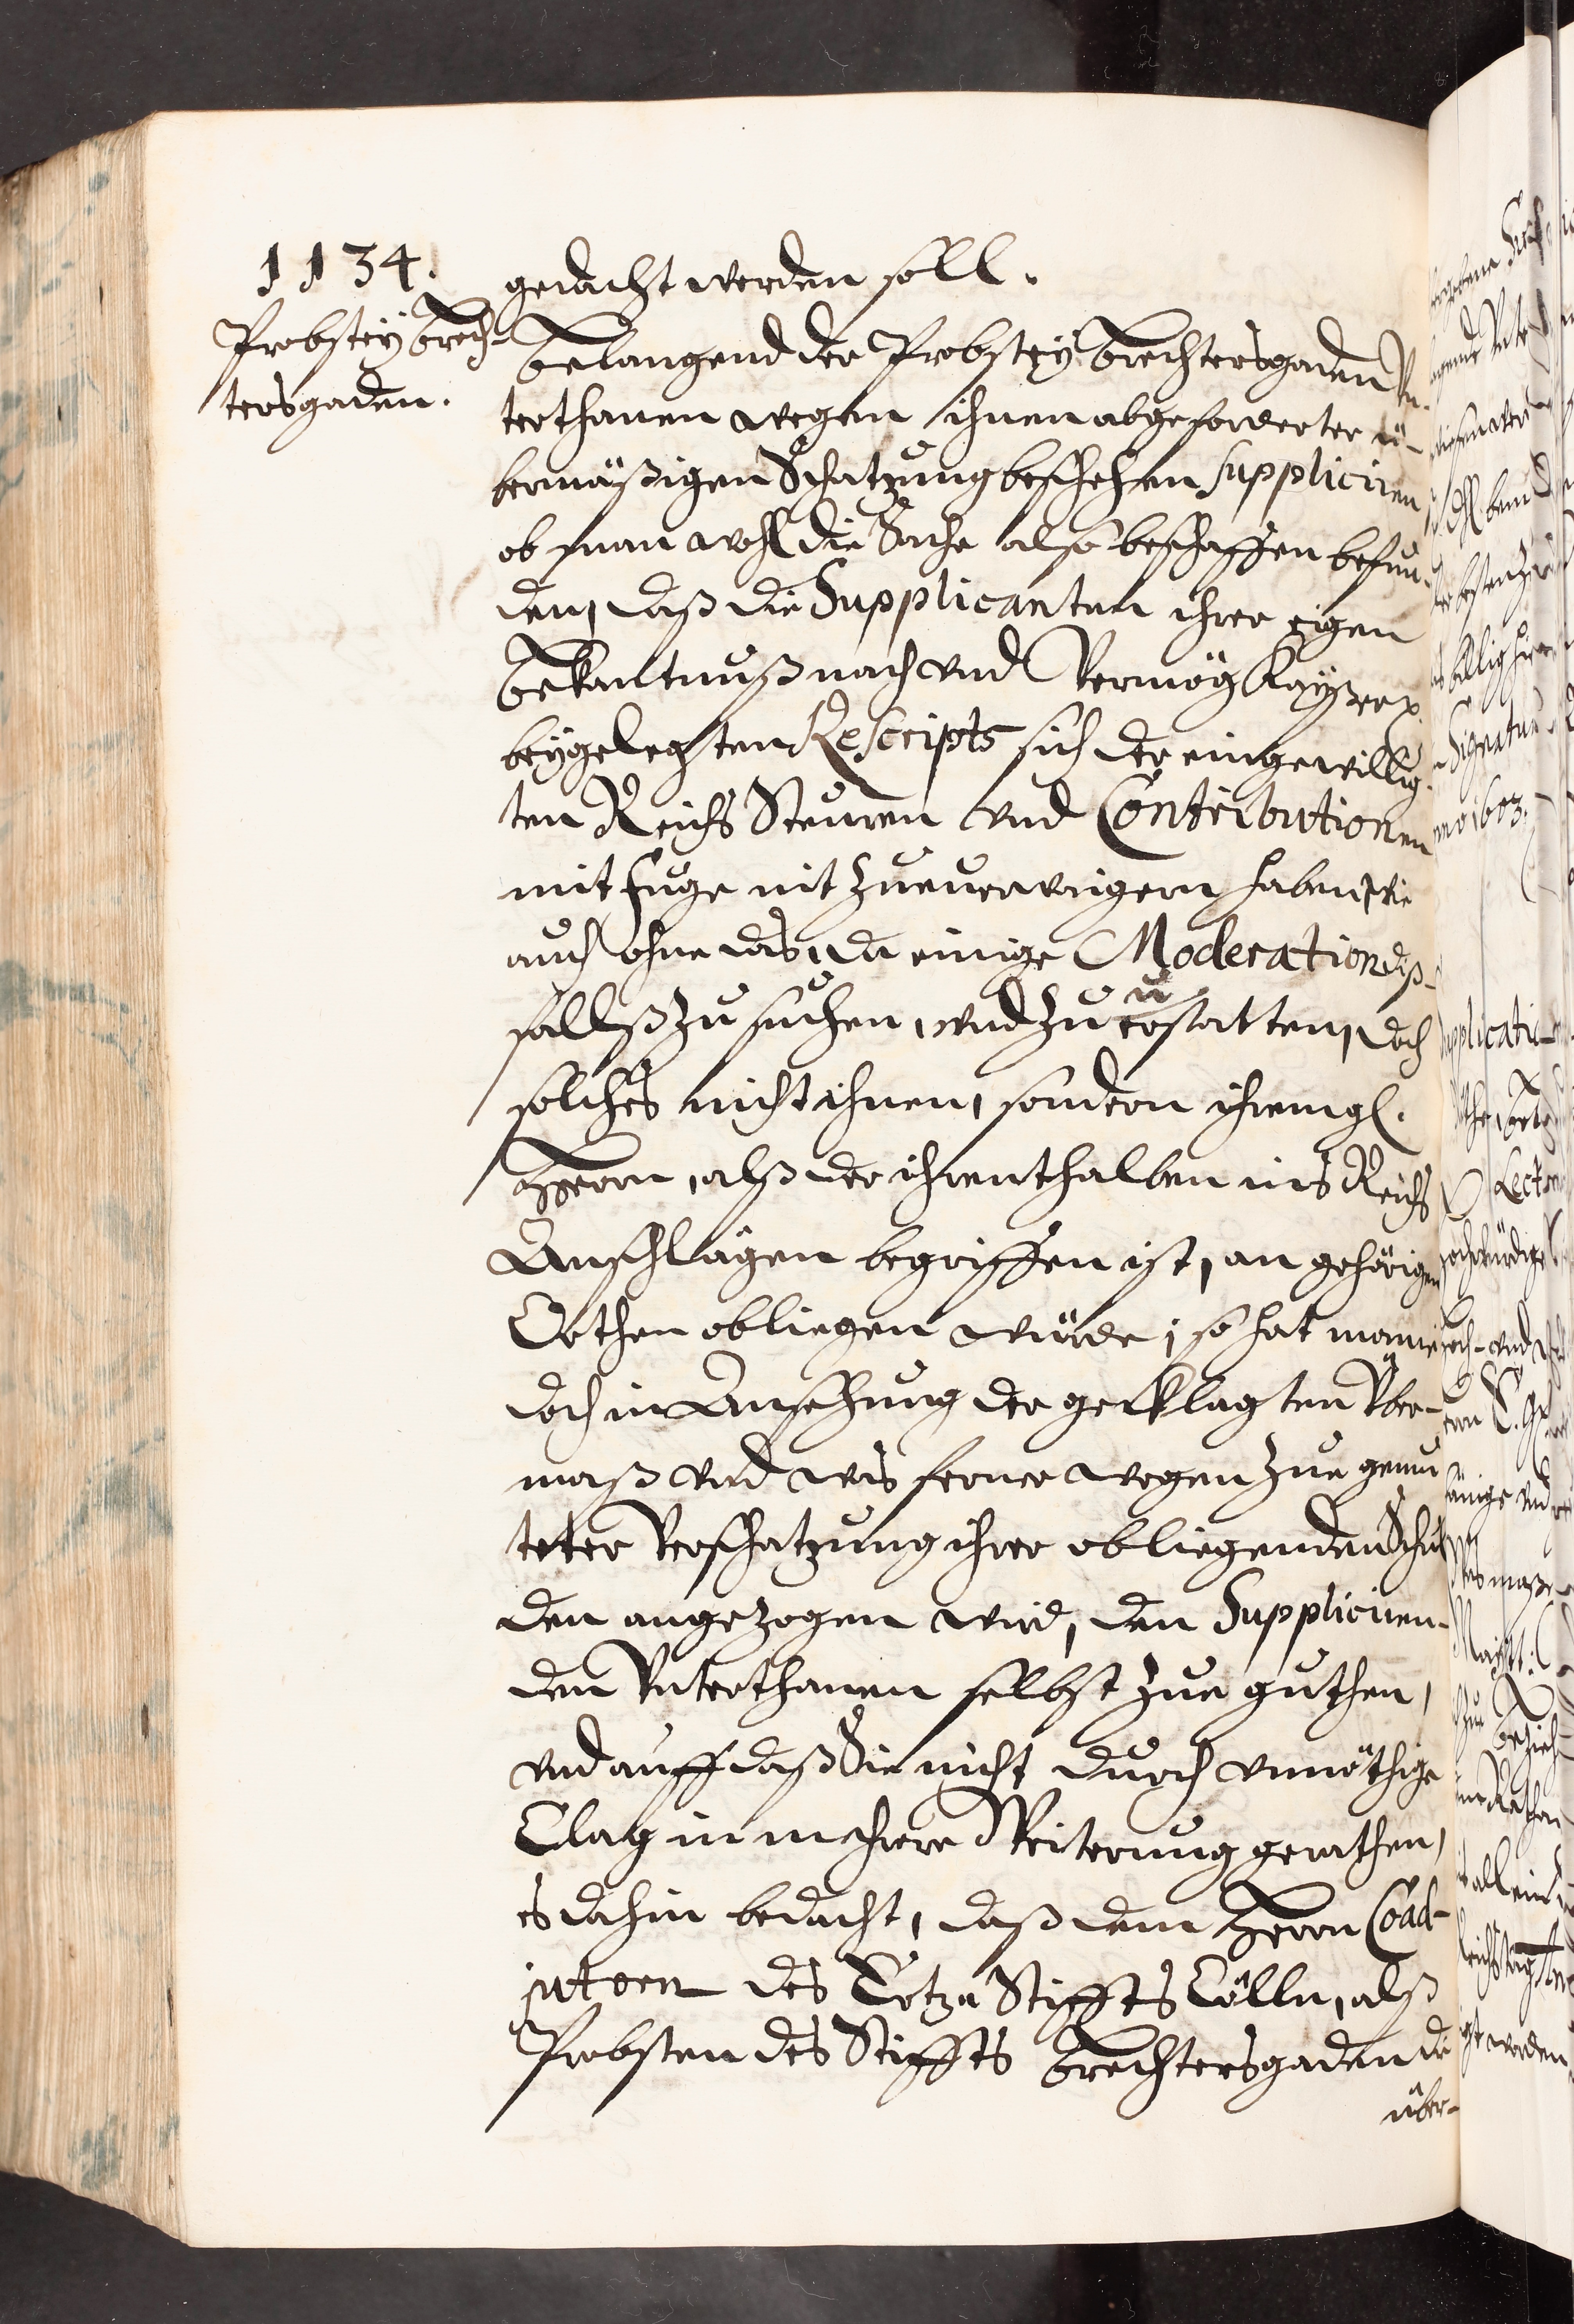 1134.
Probstey Brech-
tersgaden.
gedacht werden soll.
Belangend der Probstey Brechtersgaden Vn-
terthanen wegen ihnen abgeforderter ü-
bermäßigen Schatzung beschehen suppliciren
ob man wohl die Sache also beschaffen befun-
den, daß die Supplicanten ihrer eigen
Bekantnuß nach vnd Vermög Kayser.
beygelegten Rescripts sich der eingewillig-
ten Reichs Steuren vnd Contributionen
mit Fuge nit zue verweigern haben, wie
auch ohne das, da einige Moderation diß-
fallß zu suchen, vnd zu erstatten, doch
solches nicht ihnen, sondern ihrem gl.
Herrn, alß der ihrenthalben ins Reichs
Anschlägen begriffen ist, an gehörigen
Orthen obliegen würde; so hat man ie-
doch in Ansehung der geklagten Vber-
maß vnd was ferner wegen zue gemu
teter Verschatzung ihrer obliegenden Schul
den angezogen wird, den Suppliciren-
den Vnterthanen selbst zue guthen,
vnd auff daß Sie nicht durch vnnöthige
Clag in mehrere Weiterung gerathen,
es dahin bedacht, daß dem Herrn Coad-
jutorn des Ertzu Stiffts Cölln, alß
Probsten des Stiffts Brechtersgaden die
über-